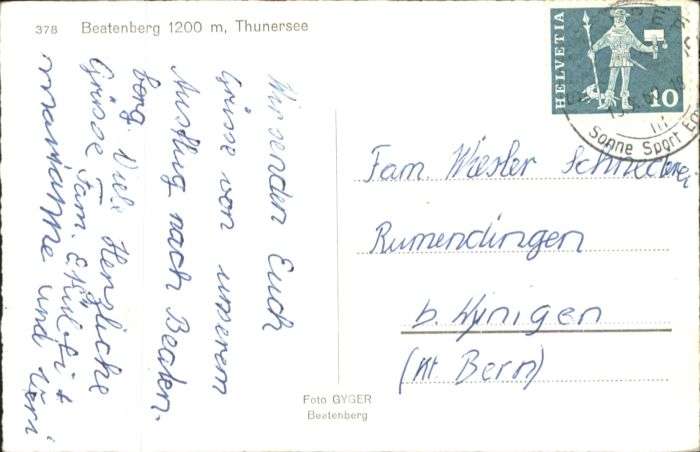 378 Beatenberg 1200 m, Thunersee
HELVETIA
10
Sonne Sport
Wir senden Euch
Grüsse von unserem
Ausflug nach Beaten-
berg. Viele Herzliche
Grüsse Fam.
Marianne und
Fam. Wiesler Schneiderei
Rumendingen
b. Wynigen
(Kt Bern)
Foto GYGER
Beatenberg